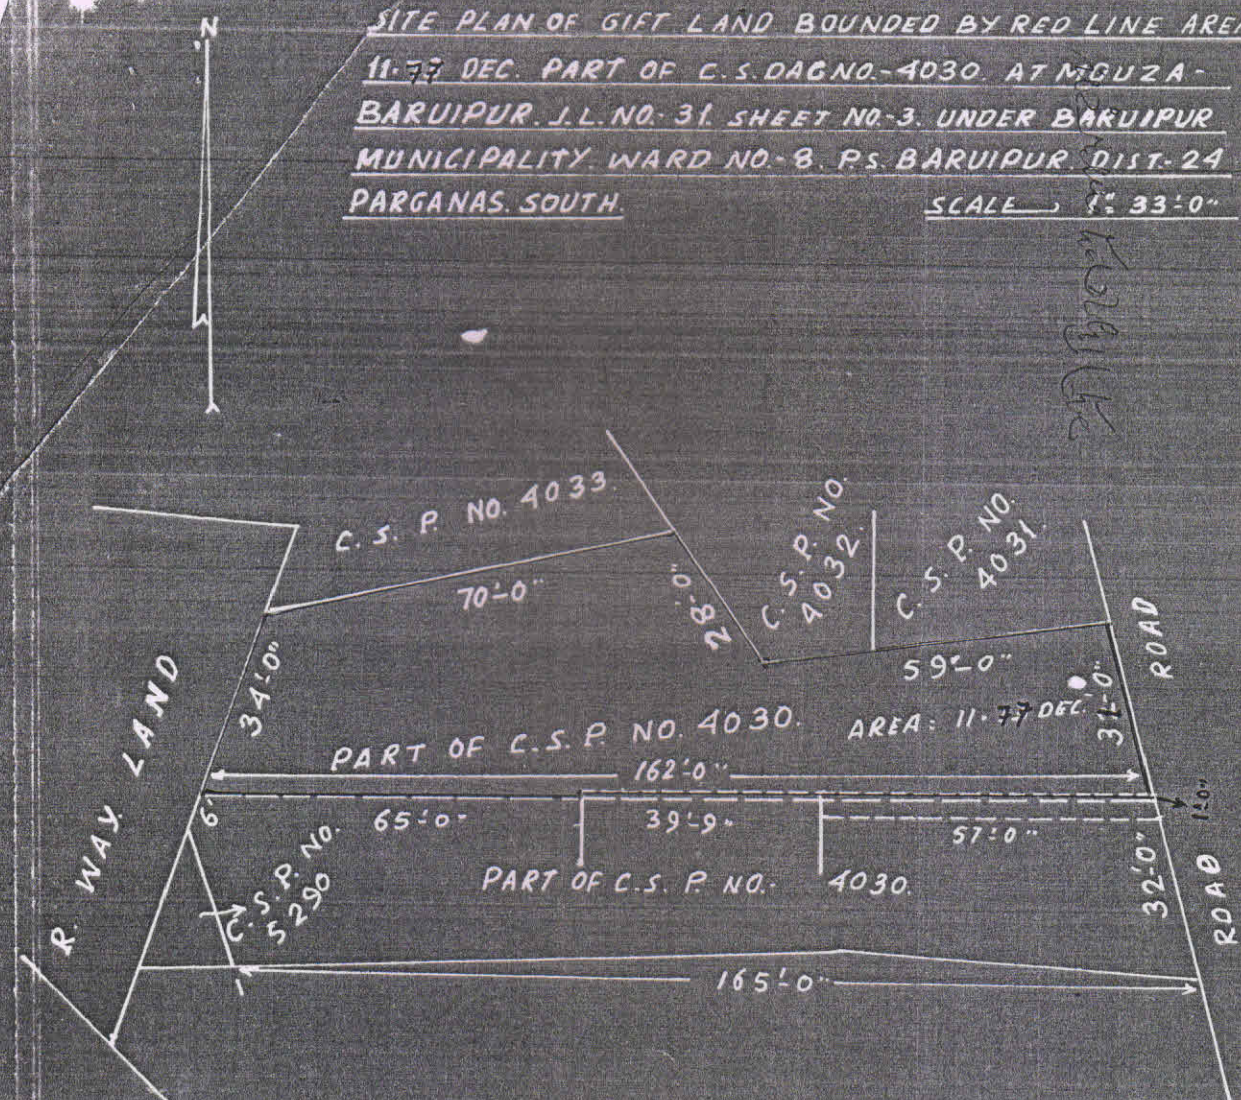 N
SITE PLAN OF GIFT LAND BOUNDED BY RED LINE AREA
11.77 DEC. PART OF C.S. DAG NO.-4030. AT MOUZA-
BARUIPUR. J.L. NO-31. SHEET NO-3. UNDER BARUIPUR
MUNICIPALITY. WARD NO-8. P.S. BARUIPUR. DIST-24
PARGANAS. SOUTH.
SCALE → 1"= 33'-0"
C. S. P. NO. 4033.
70'-0"
28'-0"
C. S. P. NO.
4032.
C. S. P. NO.
4031.
59'-0"
ROAD
34'-0"
31'-0"
R. WAY. LAND
PART OF C.S.P. NO. 4030.
AREA: 11.77 DEC.
162'-0"
6"
65'-0"
39'-9"
57'-0"
1'-0"
C. S. P. NO.
5290
PART OF C.S. P. NO. 4030.
32'-0"
ROAD
165'-0"